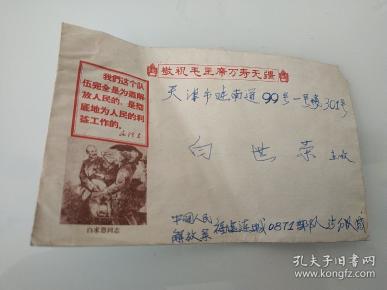 敬祝毛主席万寿无疆
我們这个队
伍完全是为着解
放人民的，是彻
底地为人民的利
益工作的。
毛泽东
天津市建南道99号一号楼301号
向世荣 主收
中国人民
解放军 福建连城0871部队
白求恩同志
孔夫子旧书网